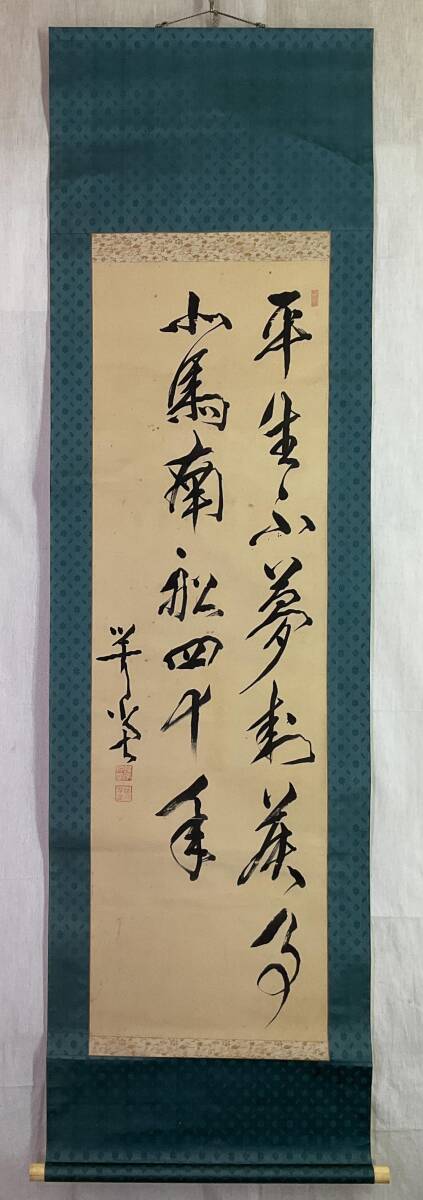 平生不夢封侯事
北馬南船四十年